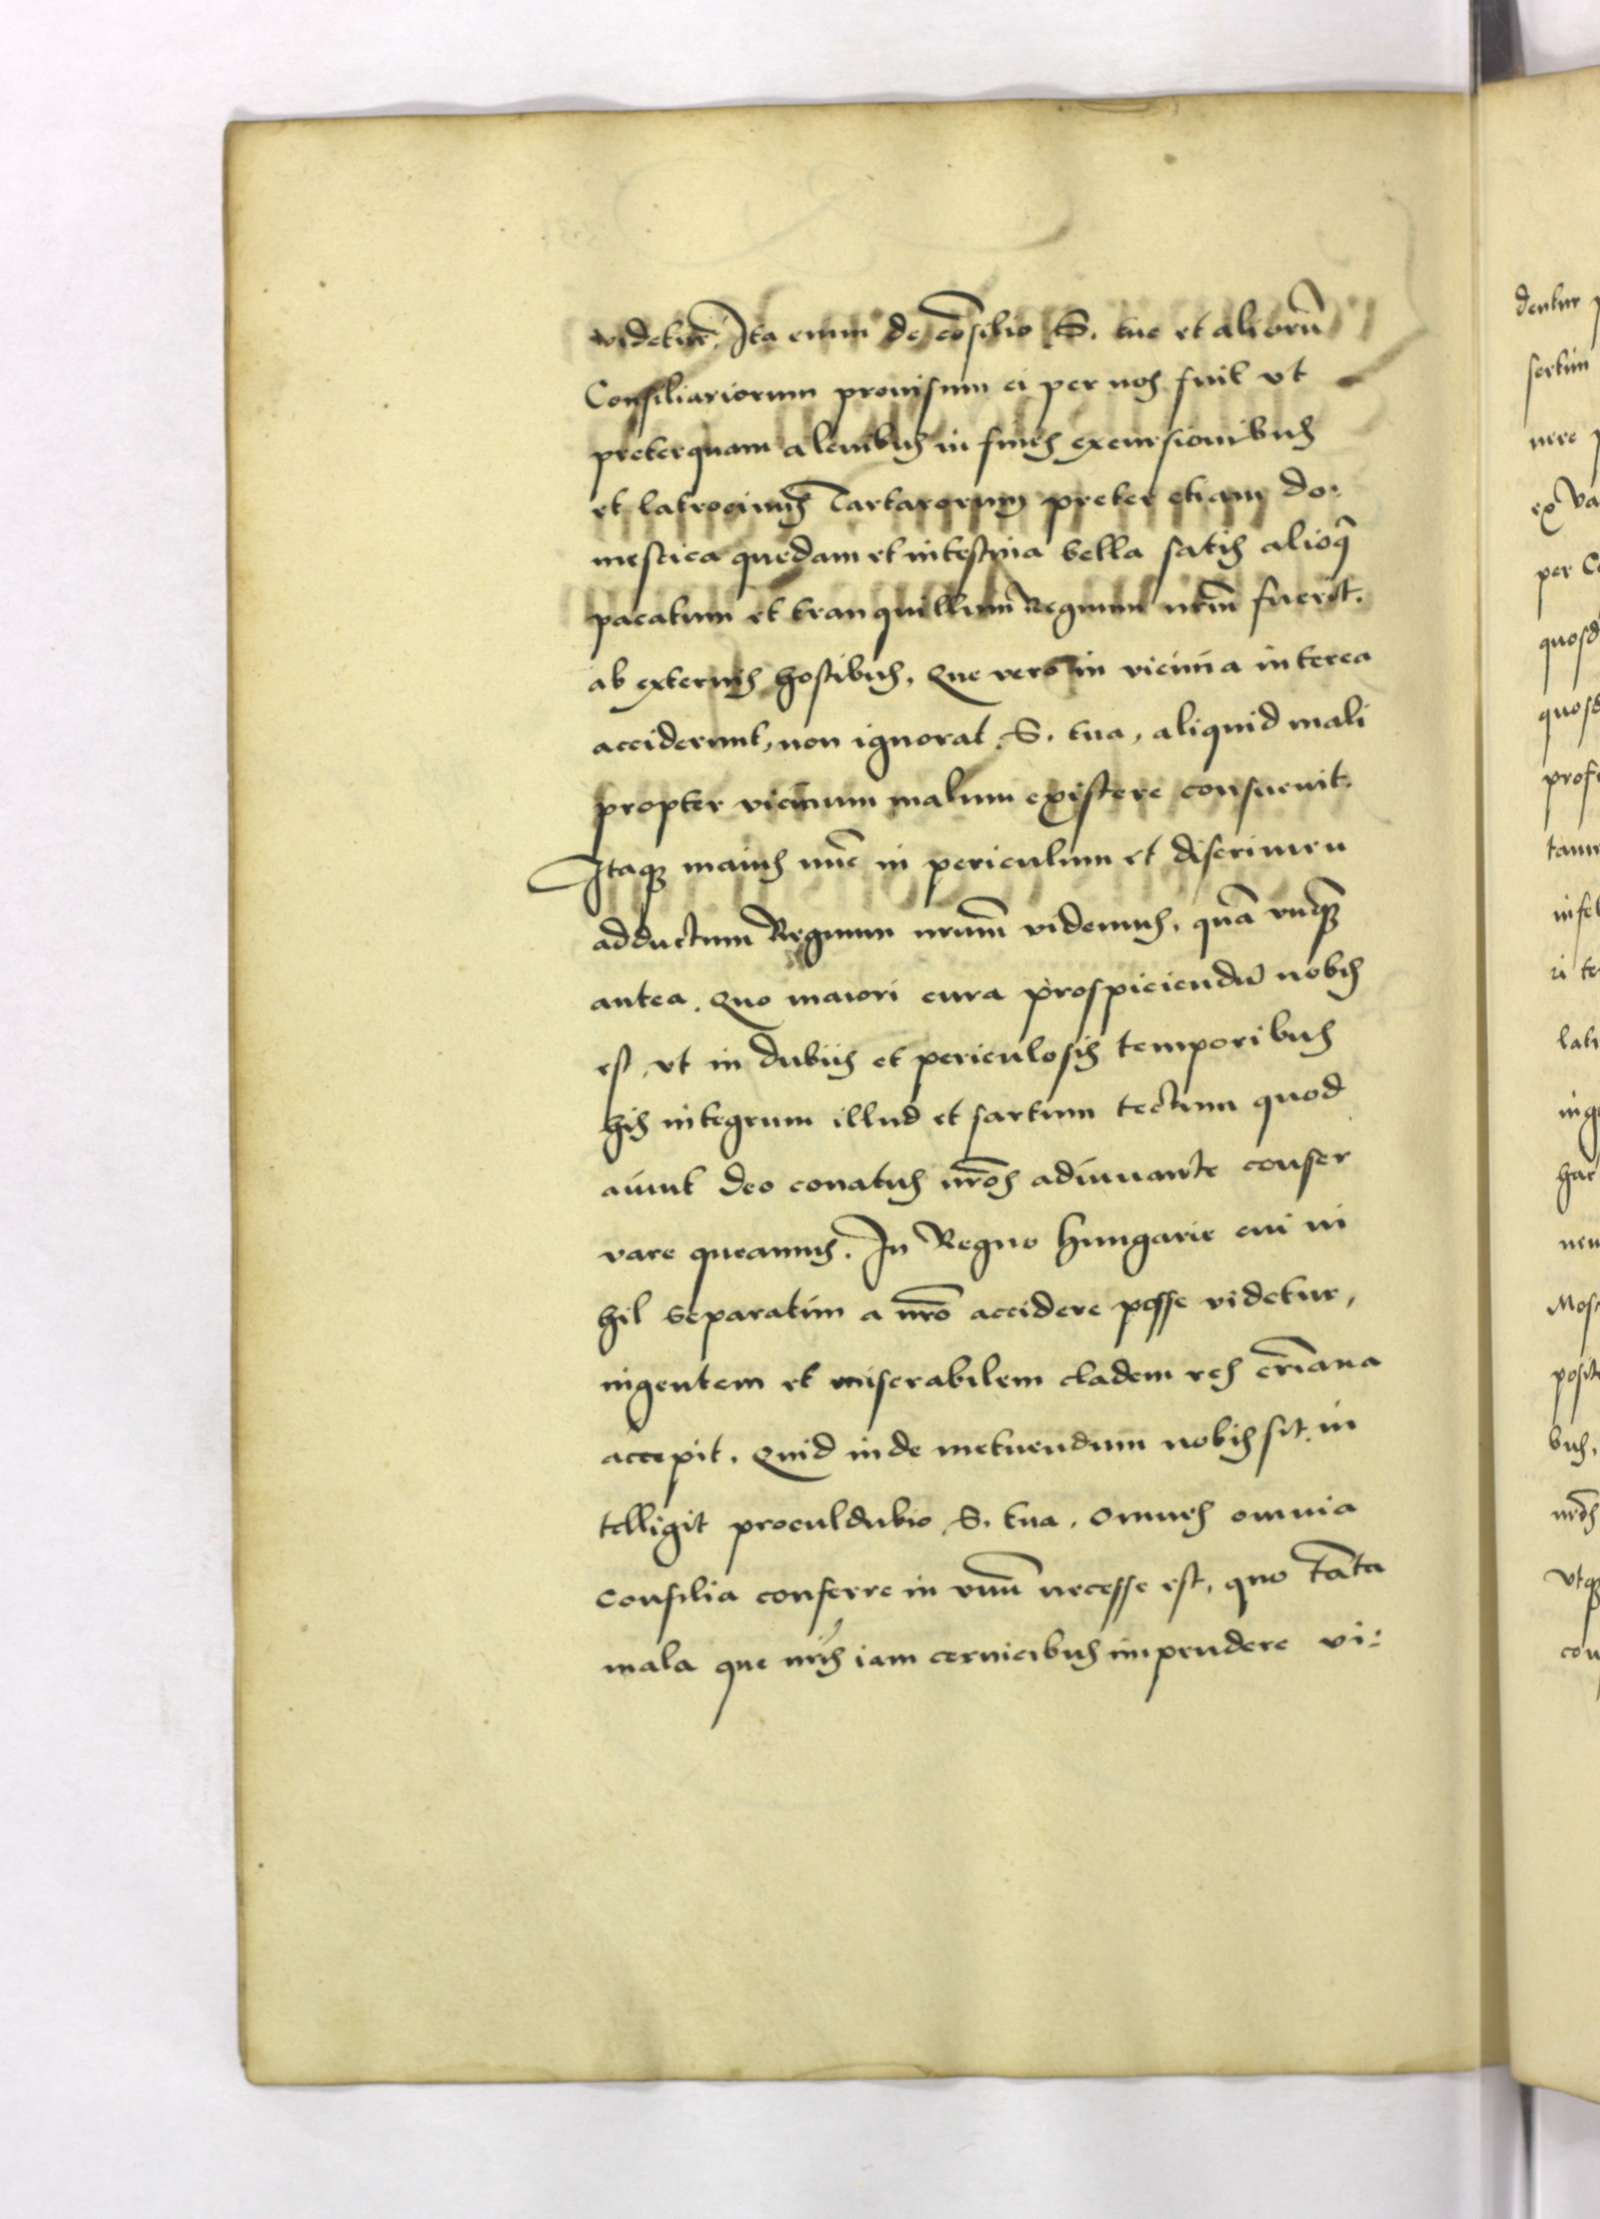 videtur. Ita enim de cōsilio S. tue et aliorū
Consiliariorum prouisum ei per nos fuit vt
preterquam a leuibus in fines excursionibus
et latrociniis Tartarorum preter etiam do:
mestica quedam et intestina bella satis alioq̄
pacatum et tranquillum Regnum nr̄m fuerit.
ab externis hostibus. Que vero in vicinia interea
acciderunt, non ignorat S. tua, aliquid mali
propter vicinum malum existere consueuit.
Itaqꝫ maius nūc in periculum et discrimen
adductum Regnum nrum̄ videmus, quā vnqꝫ
antea. Quo maiori cura prospiciendū nobis
est, vt in dubiis et periculosis temporibus
his integrum illud et sartum tectum quod
aiunt deo conatus nr̄os adiuuante conser
vare queamus. In Regno Hungarie cui ni
hil separatim a nr̄o accidere posse videtur,
ingentem et miserabilem cladem res cr̄iana
accepit. Quid inde metuendum nobis sit in
telligit proculdubio S. tua. Omnes omnia
Consilia conferre in vnū necesse est, quo tāta
mala que nr̄is iam ceruicibus impendere vi:
dentur
sertim
nere
ex Va
per C
quosd
quosd
prof
tam
infel
ri te
lati
inge
hac
Mosc
posit
bus.
nr̄os
vtqꝫ
con